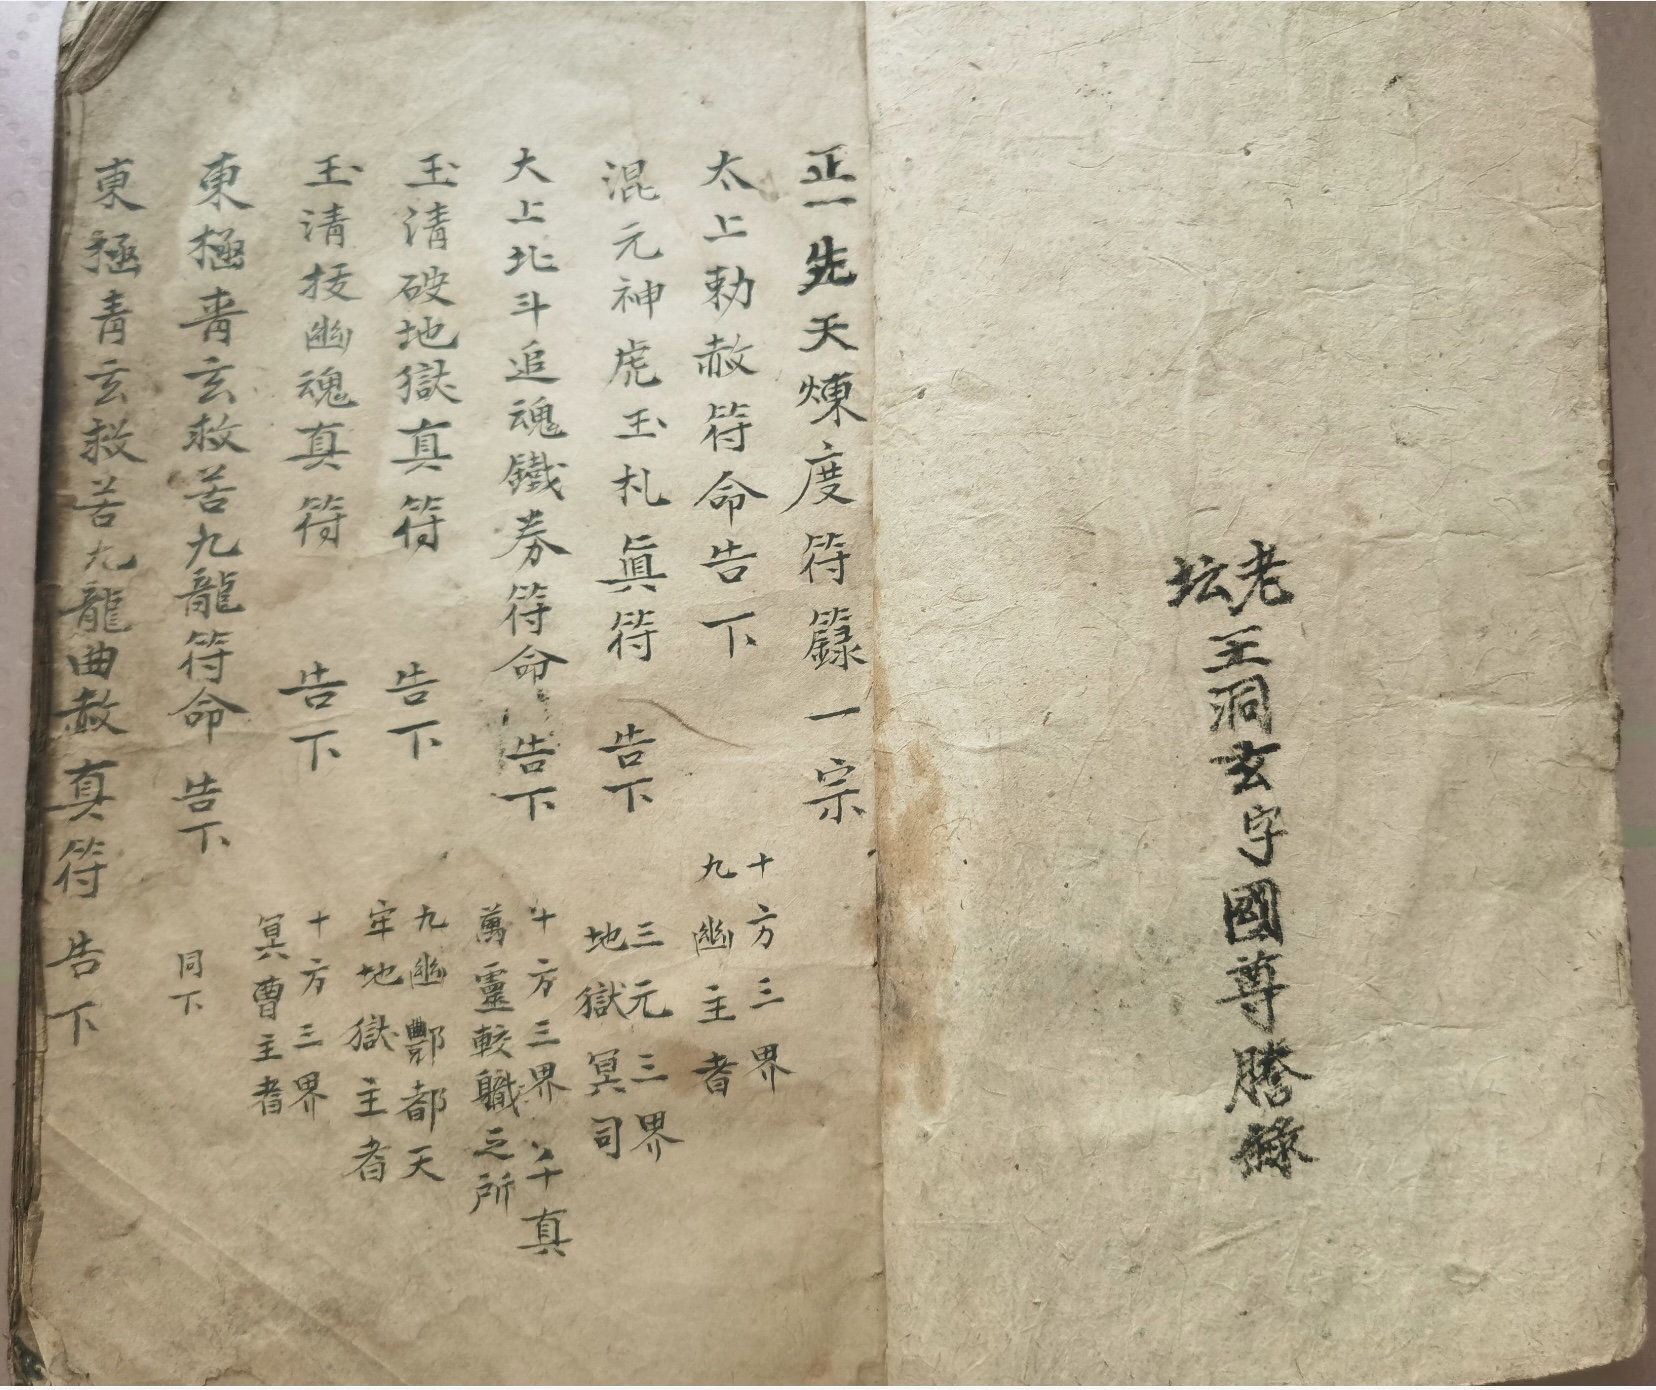 老坛
王洞玄字國尊謄錄
正一先天煉度符籙一宗
太上勅赦符命告下
十方三界
九幽主者
混元神虎玉札眞符 告下
三元三界
地獄冥司
大上北斗追魂鐵券符命告下
十方三界千真
萬靈較職之所
玉清破地獄真符 告下
九幽酆都天
牢地獄主者
玉清拔幽魂真符 告下
十方三界
冥曹主者
東極青玄救苦九龍符命 告下
同下
東極青玄救苦九龍曲赦真符 告下